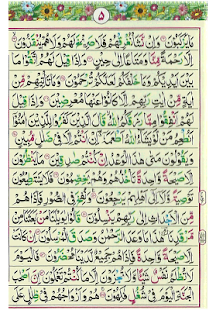 ۵
مَا يَرْكَبُوْنَ ۝ وَاِنْ نَّشَاْ نُغْرِقْهُمْ فَلَا صَرِيْخَ لَهُمْ وَلَا هُمْ يُنْقَذُوْنَ ۝
اِلَّا رَحْمَةً مِّنَّا وَمَتَاعًا اِلٰى حِيْنٍ ۝ وَاِذَا قِيْلَ لَهُمُ اتَّقُوْا مَا
بَيْنَ اَيْدِيْكُمْ وَمَا خَلْفَكُمْ لَعَلَّكُمْ تُرْحَمُوْنَ ۝ وَمَا تَاْتِيْهِمْ مِّنْ
اٰيَةٍ مِّنْ اٰيٰتِ رَبِّهِمْ اِلَّا كَانُوْا عَنْهَا مُعْرِضِيْنَ ۝ وَاِذَا قِيْلَ
لَهُمْ اَنْفِقُوْا مِمَّا رَزَقَكُمُ اللّٰهُ قَالَ الَّذِيْنَ كَفَرُوْا لِلَّذِيْنَ اٰمَنُوْٓا
اَنُطْعِمُ مَنْ لَّوْ يَشَآءُ اللّٰهُ اَطْعَمَهٗٓ اِنْ اَنْتُمْ اِلَّا فِيْ ضَلٰلٍ مُّبِيْنٍ ۝
وَيَقُوْلُوْنَ مَتٰى هٰذَا الْوَعْدُ اِنْ كُنْتُمْ صٰدِقِيْنَ ۝ مَا يَنْظُرُوْنَ
اِلَّا صَيْحَةً وَّاحِدَةً تَاْخُذُهُمْ وَهُمْ يَخِصِّمُوْنَ ۝ فَلَا يَسْتَطِيْعُوْنَ
تَوْصِيَةً وَّلَآ اِلٰٓى اَهْلِهِمْ يَرْجِعُوْنَ ۝ وَنُفِخَ فِي الصُّوْرِ فَاِذَا هُمْ
مِّنَ الْاَجْدَاثِ اِلٰى رَبِّهِمْ يَنْسِلُوْنَ ۝ قَالُوْا يٰوَيْلَنَا مَنْۢ بَعَثَنَا مِنْ
مَّرْقَدِنَا هٰذَا مَا وَعَدَ الرَّحْمٰنُ وَصَدَقَ الْمُرْسَلُوْنَ ۝ اِنْ كَانَتْ
اِلَّا صَيْحَةً وَّاحِدَةً فَاِذَا هُمْ جَمِيْعٌ لَّدَيْنَا مُحْضَرُوْنَ ۝ فَالْيَوْمَ
لَا تُظْلَمُ نَفْسٌ شَيْـًٔا وَّلَا تُجْزَوْنَ اِلَّا مَا كُنْتُمْ تَعْمَلُوْنَ ۝ اِنَّ اَصْحٰبَ
الْجَنَّةِ الْيَوْمَ فِيْ شُغُلٍ فٰكِهُوْنَ ۝ هُمْ وَاَزْوَاجُهُمْ فِيْ ظِلٰلٍ عَلَى